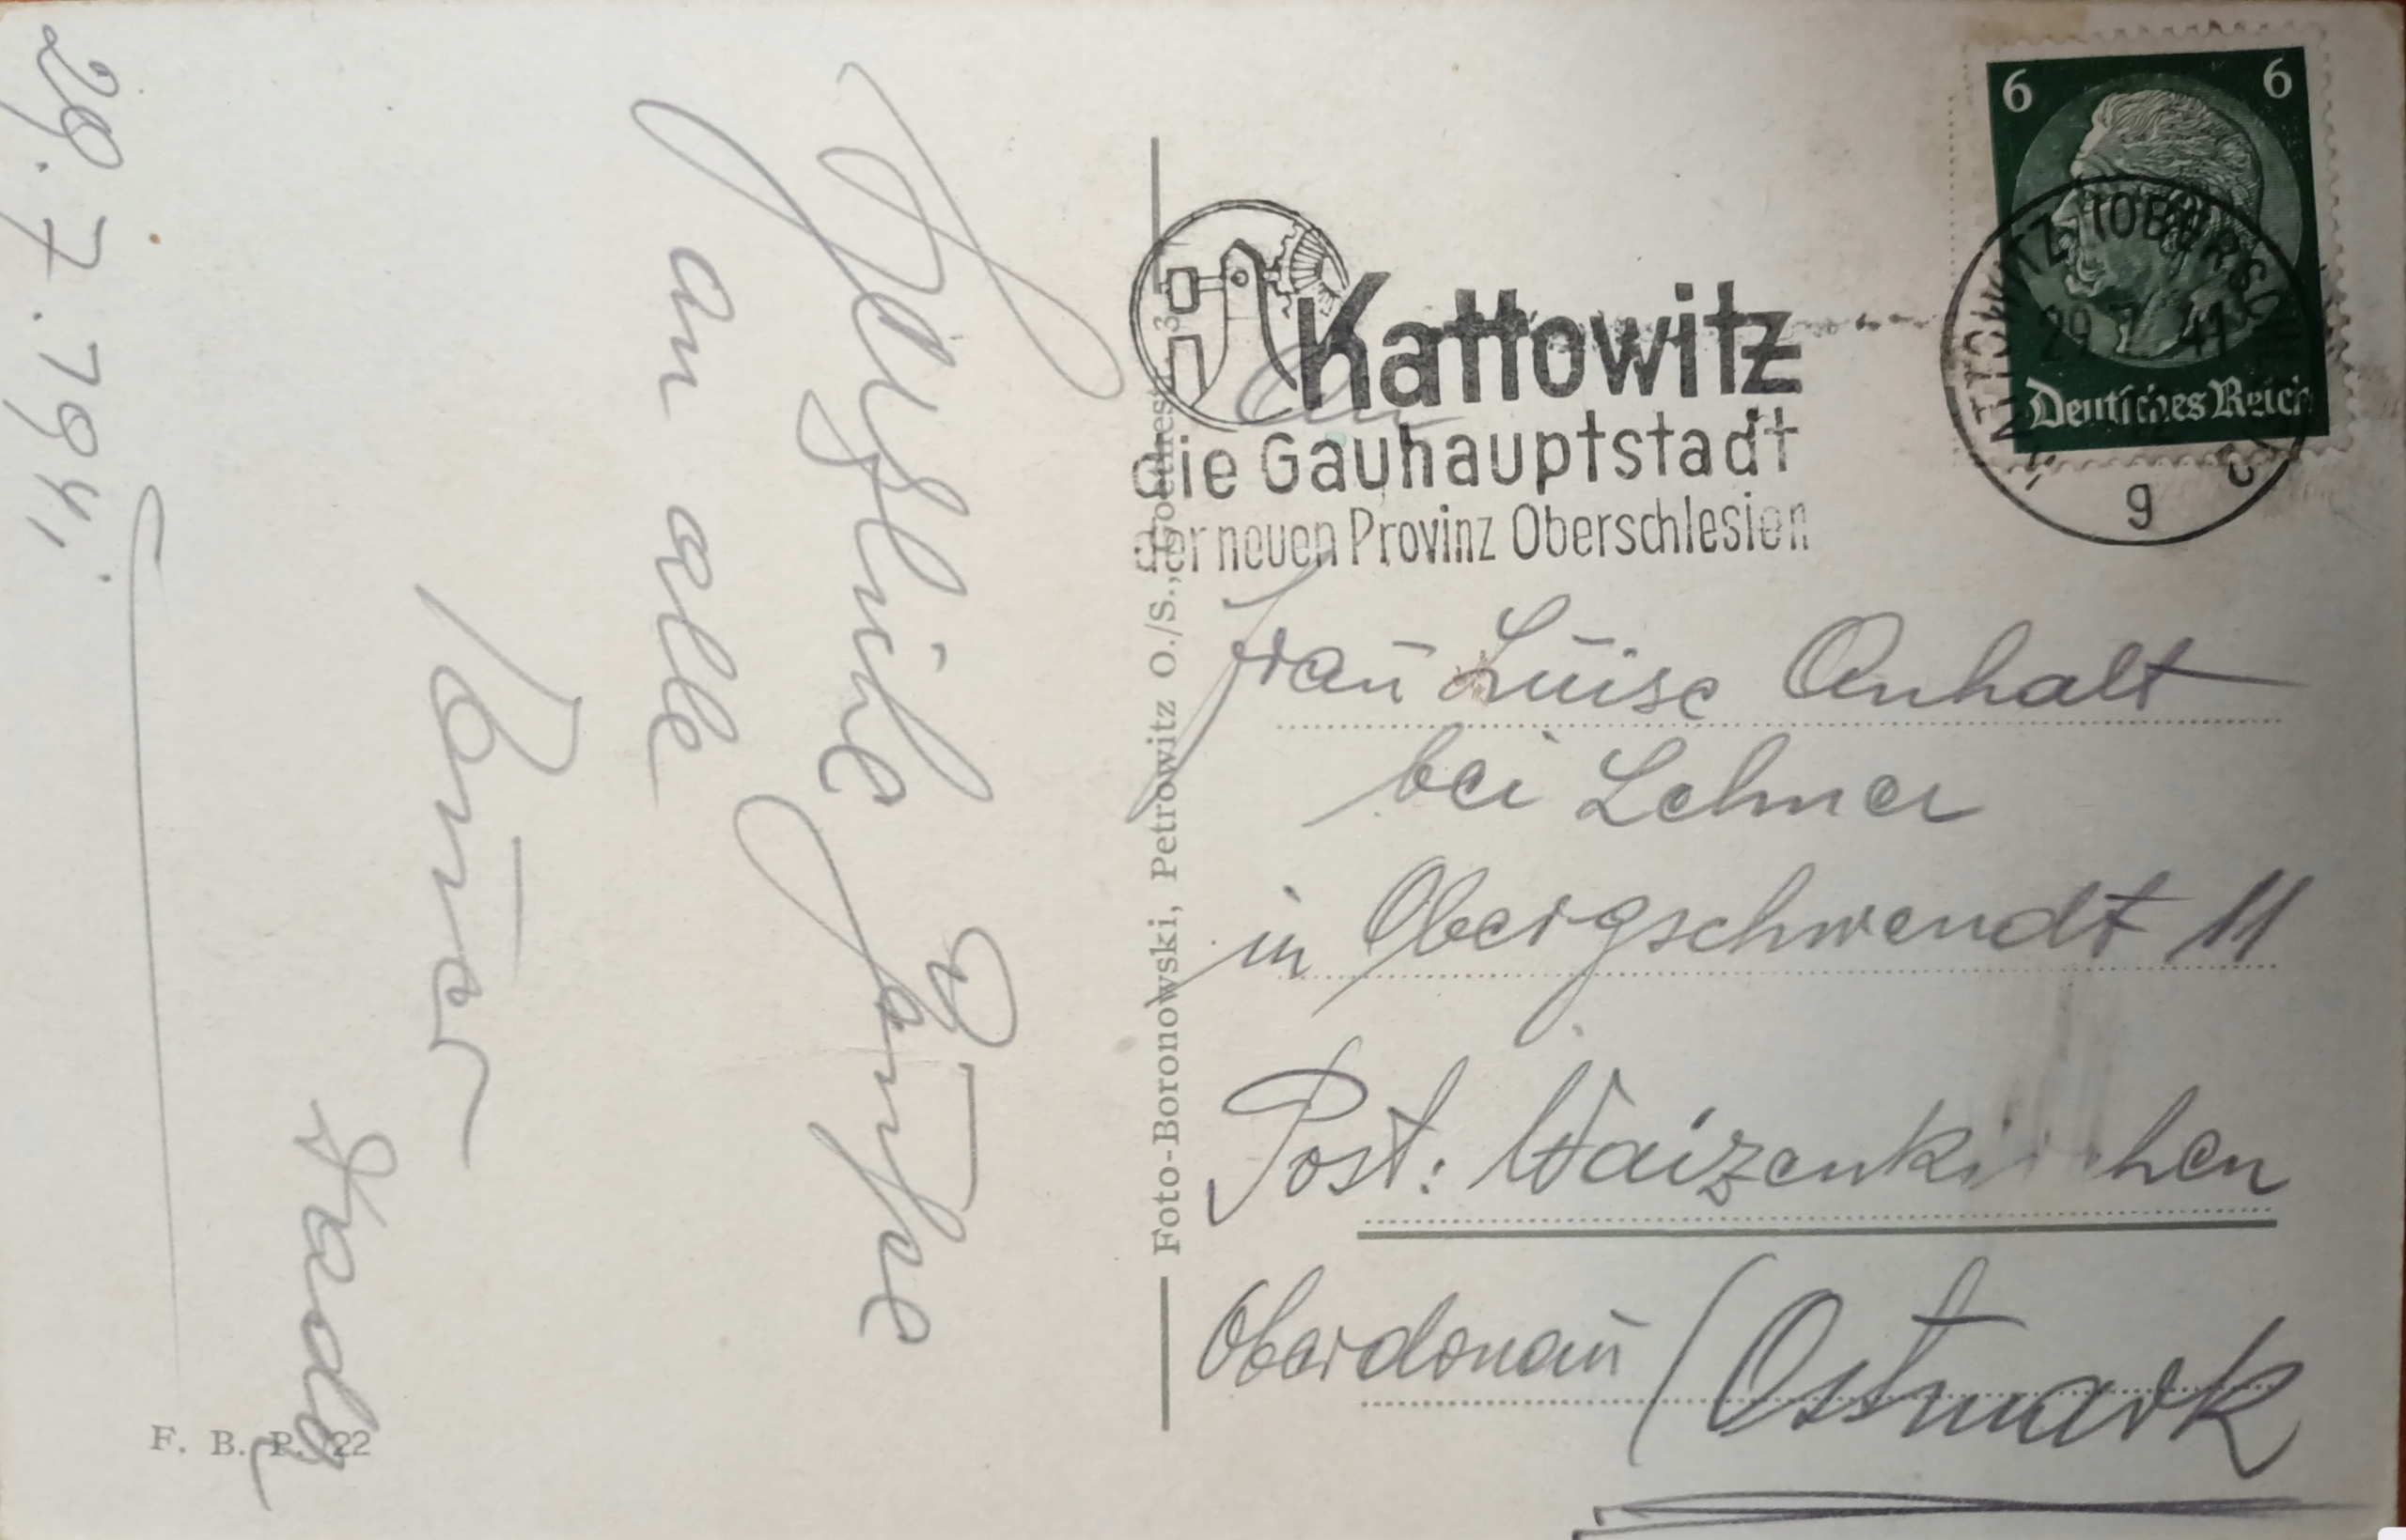 28.7.1941
Herzliche Grüße
an alle
Euer
6 6
Deutsches Reich
29.7.41
g
Kattowitz
die Gauhauptstadt
der neuen Provinz Oberschlesien
an
Frau Luise Anhalt
bei Lehner
in Obergschwendt 11
Post: Waizenkirchen
Oberdonau / Ostmark
Foto-Boronowski, Petrowitz O./S., Goethestr. 3
F. B. P. 22